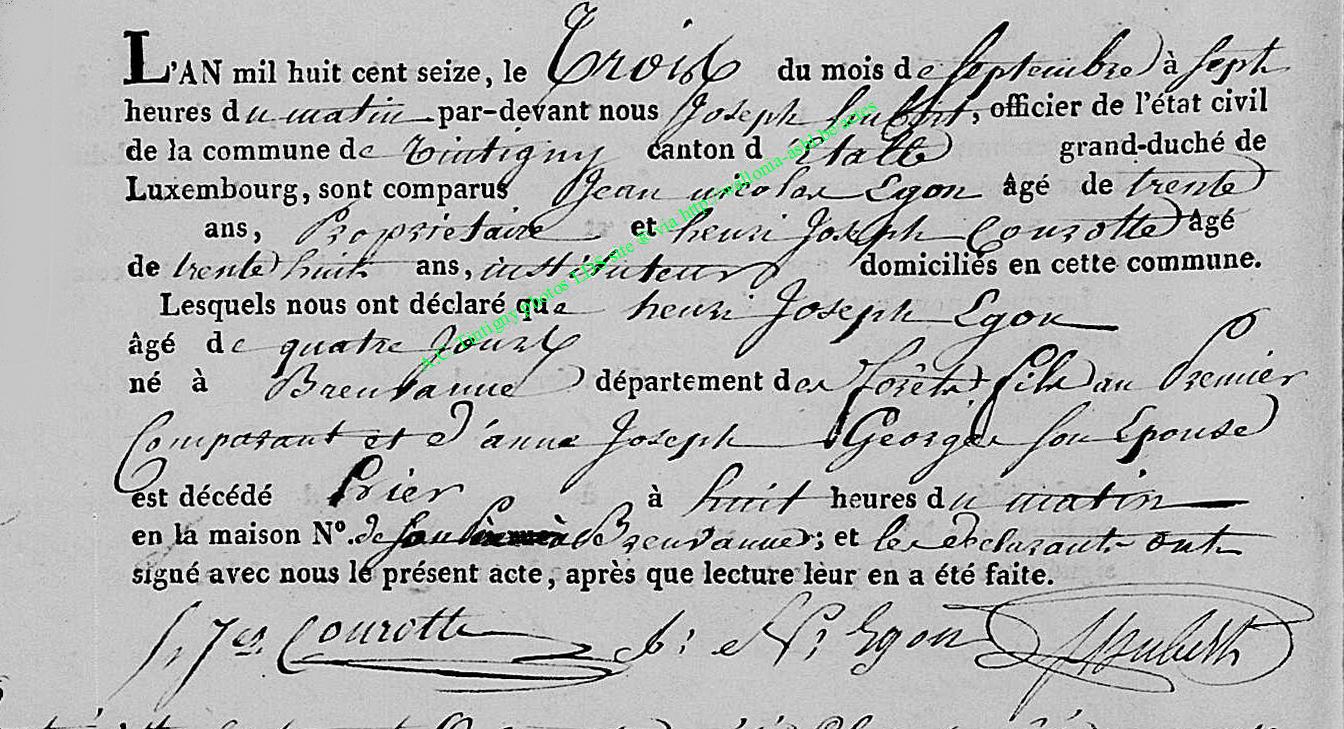 L'AN mil huit cent seize, le Trois du mois de Septembre à Sept
heures du matin par-devant nous Joseph hubert, officier de l'état civil
de la commune de Tintigny canton d'Etalle grand-duché de
Luxembourg, sont comparus Jean nicolas Lgon âgé de trente
ans, Propriétaire et henri Joseph Courotte âgé
de trente huit ans, instituteur domiciliés en cette commune.
Lesquels nous ont déclaré que henri Joseph Lgon
âgé de quatre Jours
né à Breuvanne département des forêts, fils au Premier
Comparant et d'anne Joseph George son Epouse
est décédé hier à huit heures du matin
en la maison N°. de son à Breuvanne; et les déclarants ont
signé avec nous le présent acte, après que lecture leur en a été faite.
Courotte N: Lgon hubert
A.C. Tintigny photos LDS site @ via http://wallonia-asbl.be/actes